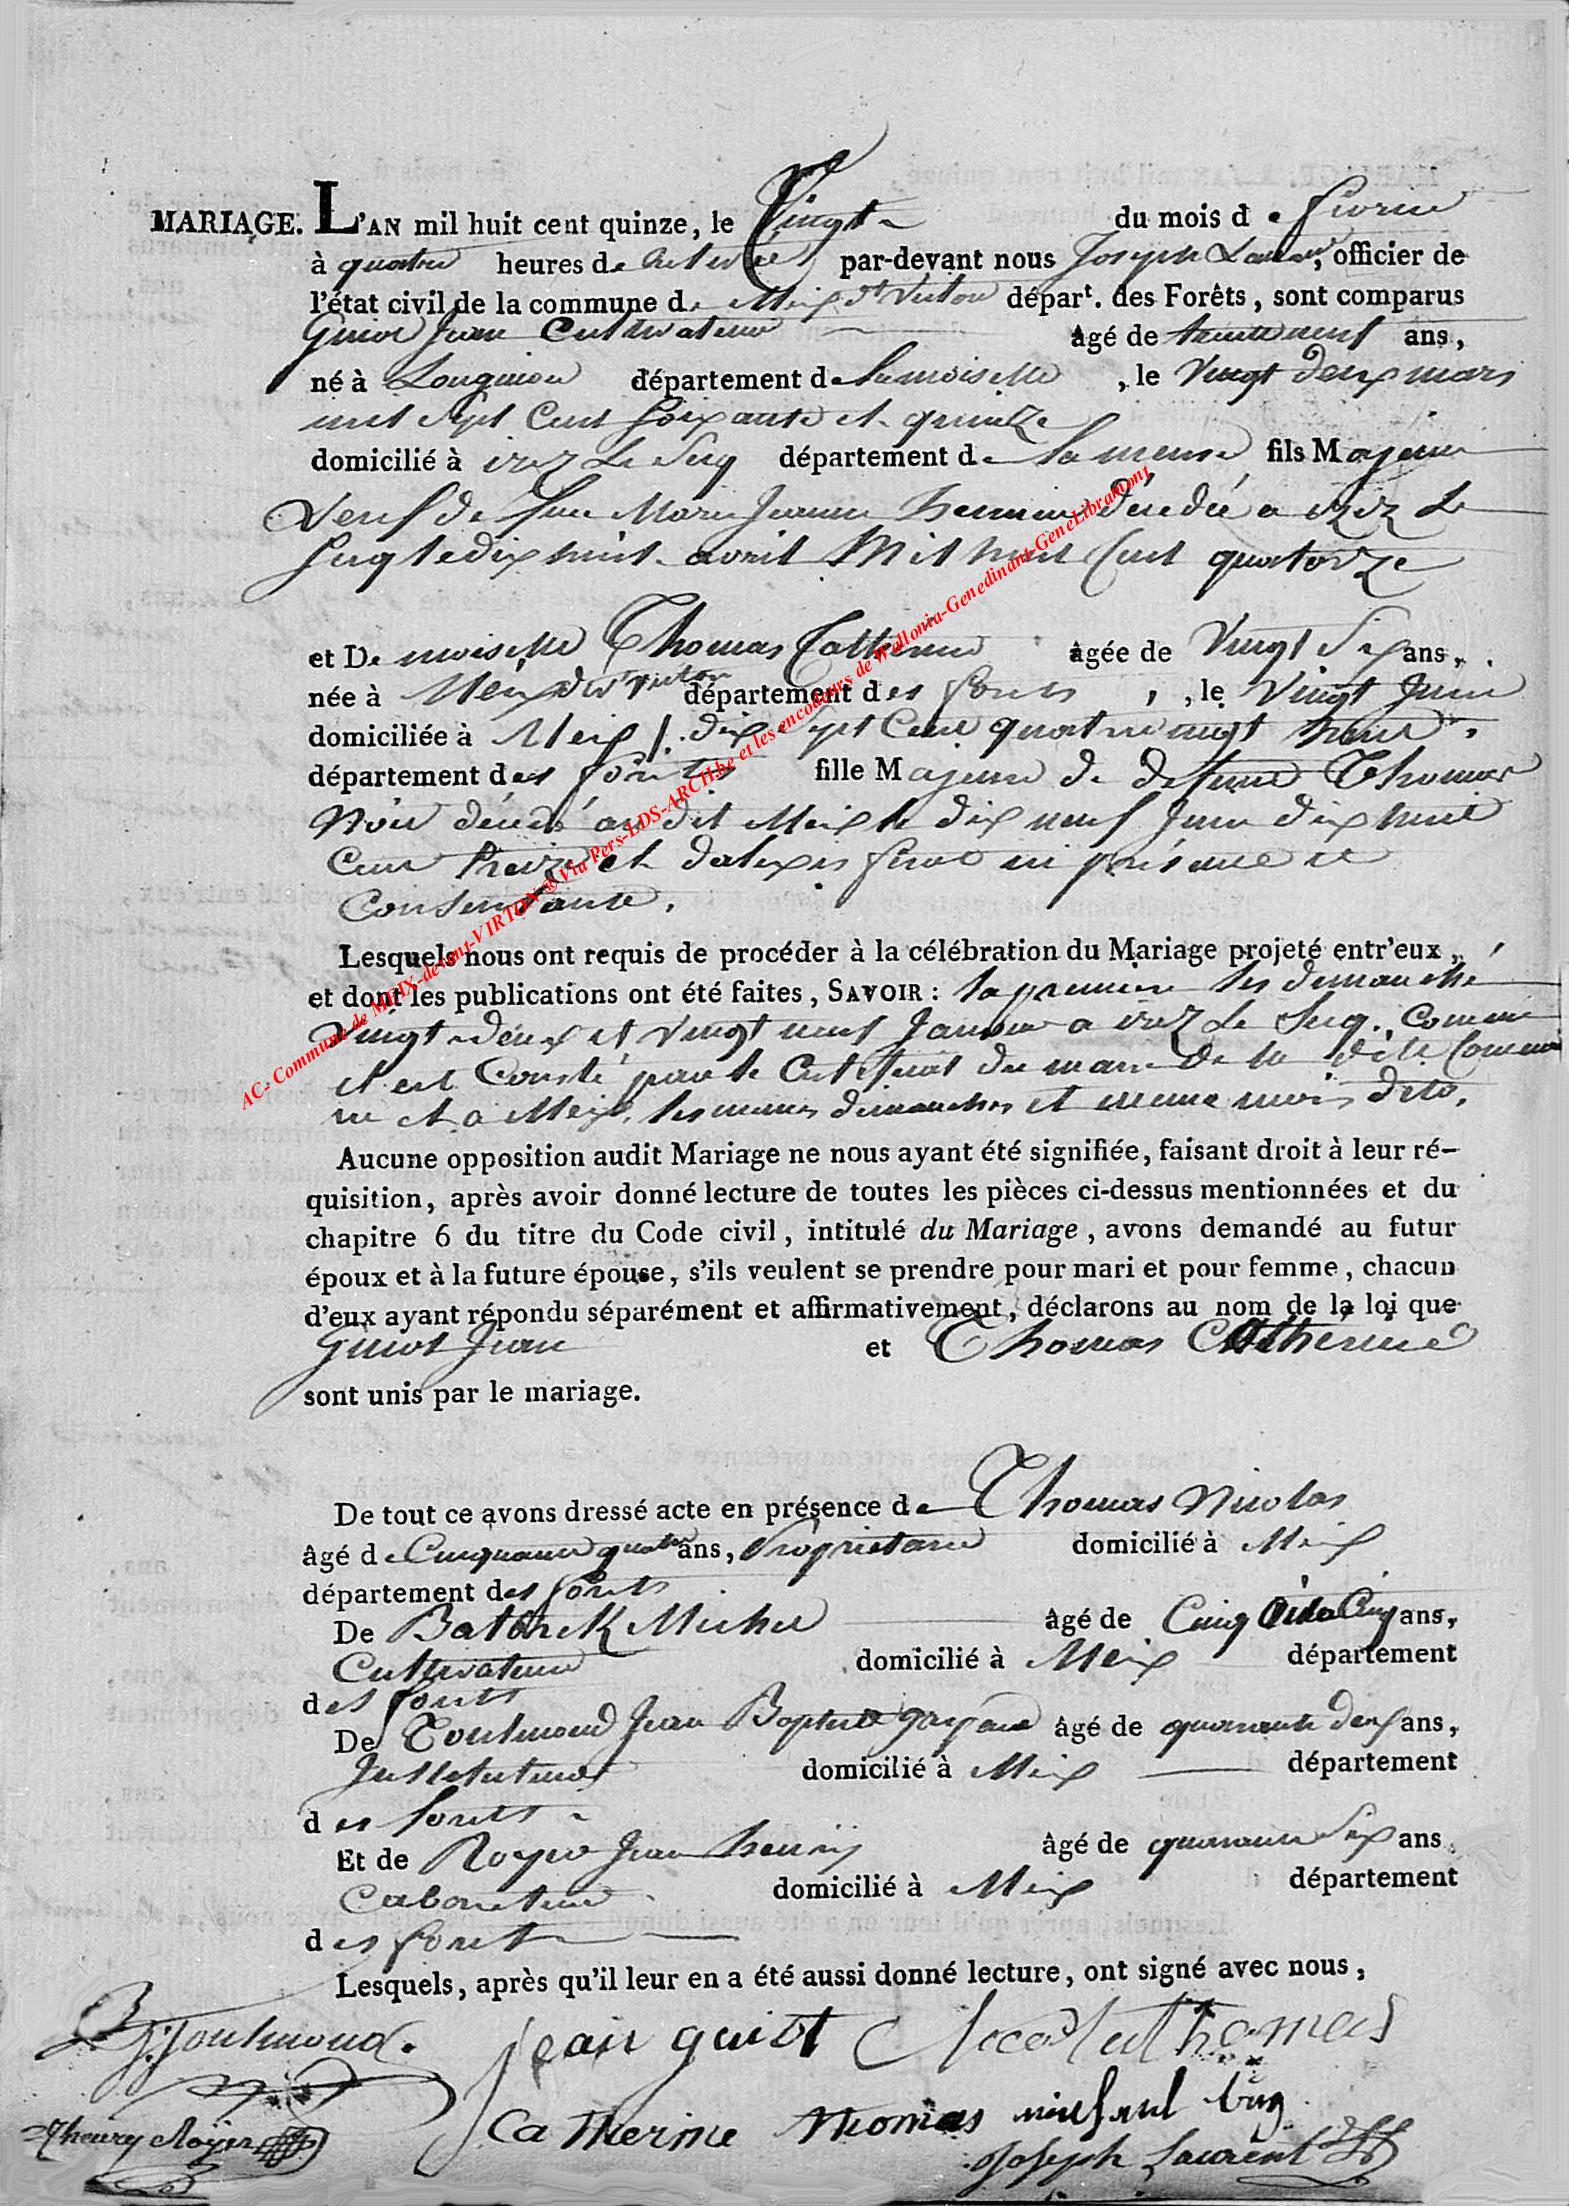 MARIAGE. L'AN mil huit cent quinze, le Vingt du mois de fevrier
à quatre heures de relevée par-devant nous Joseph Laurent, officier de
l'état civil de la commune de Meix dt Virton départ. des Forêts, sont comparus
Guiot Jean Cultivateur âgé de trente neuf ans,
né à Longuion département de la moiselle, le Vingt deux mars
mil sept Cent soixante et quinze
domicilié à irez Le Secq département de la meuse fils Majeur
Veuf de feue Marie Jeanne hennin décédée a irez Le
Secq le dix huit avril Mil huit Cent quatorze
et Demoiselle Thomas Catherine âgée de Vingt Six ans,
née à Meix dvt Virton département des forets, le Vingt Juin
domiciliée à Meix /. dix Sept Cent quatre vingt huit.
département des forêts fille Majeure de defunt Thomas
décédé au dit Meix le dix neuf Juin dix huit
Cent treize et en présence et
Consentante.
Lesquels nous ont requis de procéder à la célébration du Mariage projeté entr'eux,
et dont les publications ont été faites, SAVOIR : la premiere les dimanche
Vingt-deux et Vingt neuf Janvier a irez Le Secq. Comme
il est Consté par le Certificat du maire de la dite Commu
ne et a Meix, les memes dimanches et meme mois dito.
Aucune opposition audit Mariage ne nous ayant été signifiée, faisant droit à leur ré-
quisition, après avoir donné lecture de toutes les pièces ci-dessus mentionnées et du
chapitre 6 du titre du Code civil, intitulé du Mariage, avons demandé au futur
époux et à la future épouse, s'ils veulent se prendre pour mari et pour femme, chacun
d'eux ayant répondu séparément et affirmativement, déclarons au nom de la loi que
Guiot Jean et Thomas Catherine
sont unis par le mariage.
De tout ce avons dressé acte en présence de Thomas Nicolas
âgé de Cinquante quatre ans, Proprietaire domicilié à Meix
département des forets
De Michel âgé de Cinq ans,
Cultivateur domicilié à Meix département
des forets
De Toulmond Jean Baptiste âgé de quarante deux ans,
Instituteur domicilié à Meix département
des forets
Et de Royer Jean henry âgé de quarante Six ans.
domicilié à Meix département
des foret
Lesquels, après qu'il leur en a été aussi donné lecture, ont signé avec nous,
Toulmond. jean guiot Nicolas Thomas
Jhenry Royer Catherine Thomas
Joseph Laurent
AC- Commune de MEIX-devant-VIRTON @ Via Pers-LDS-ARCH.be et les encodeurs de Wallonia-Genedinant-GeneLibramont